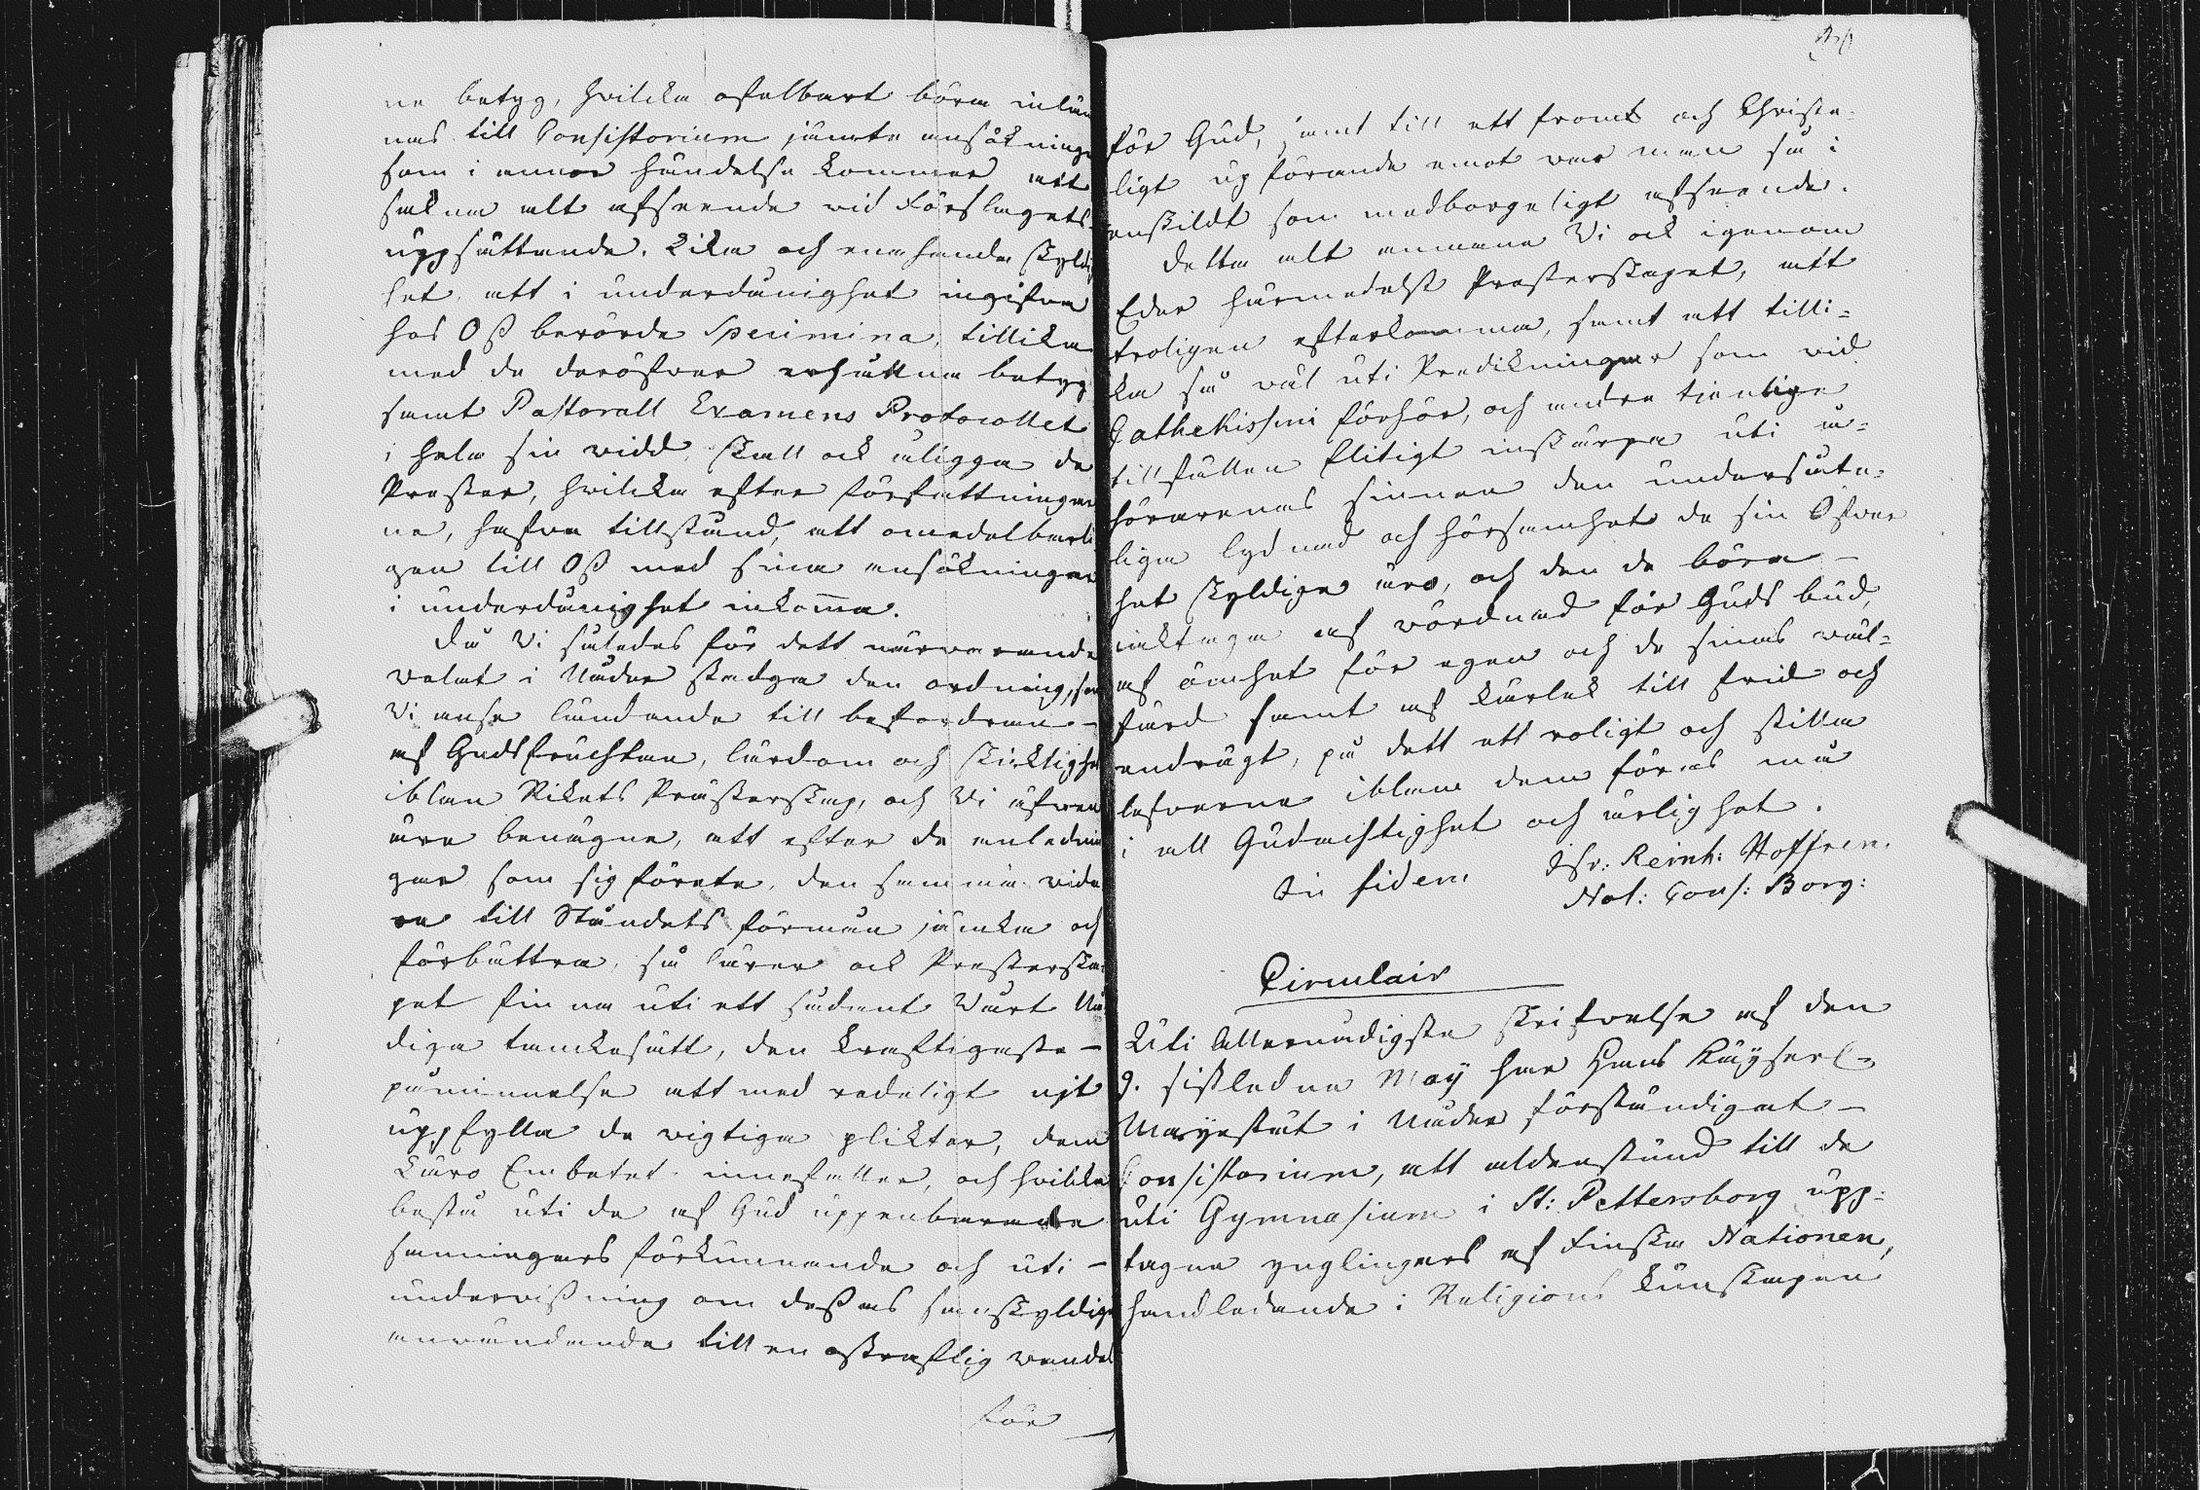 ne betyg, hvilcka ofelbart böra inläm
nas till Consistorium jämte ansökninge
som i annor händelse kommer att
sakna alt afseende vid Förslagets
uppsättande. Lika och enahanda skyldig
het, att i underdånighet ingifva
hos Oß berörde Specimina, tillika
med de deröfver erhållna betyg
samt Pastorall Examens Protocollet
i hela sin vidd, skall ock åligga de
Prester, hvilcka efter författningar
ne, hafva tillstånd, att omedelbarli
gen till Oß med sina ansökningar
i underdånighet inkomma.
Då Vi således för dett närvarande
velat i Nåder stadga den ordning, som
Vi anse ländande till befordran
af Gudsfruchtan, lärdom och skicklighet
iblan Rikets Prästerskap, och Vi äfven
äre benägne, att efter de anlednin
gar som sig förete, den samma vida
re till Ståndets förmån jämka och
förbättra, så lärer ock Presterska
pet finna uti ett sådant Vårt Nå
diga tanckesätt, den kraftigaste
påminnelse att med redeligt nit
uppfylla de vigtiga plikter, dem
Läro Embetet innefattar, och hvilka
bestå uti de af Gud uppenbarade
sanningars förkunnande och uti
undervißning om deßas sanskyldiga
anvandande till en ostraflig vandel
för
för Gud, samt till ett fromt och Christe-
ligt upförande emot var man så i
enskildt som medborgeligt afseende.
Detta alt anmane Vi ock igenom
Eder härmedelst Presterskapet, att
troligen efterkomma, samt att tilli-
ka så väl uti Predikningar som vid
Cathekismi förhör, och andra tienlige
tillfällen flitigt inskärpa uti å-
hörarenas sinnen den undersåte-
liga lydnad och hörsamhet de sin Öfver
het skyldige äro, och den de böra
iakttaga af vördnad för Guds bud,
af ömhet för egen och de sinas väl-
färd samt af kärlek till frid och
endrägt, på dett ett roligt och stilla
lefverne ibland dem föras må
i all Gudachtighet och ärlighet.
In fidem Isr: Reinh: Hoffren.
Not: Cons: Borg:
Circulair
Uti Allernådigste skrifvelse af den
9. sistledne Maÿ har Hans Kaÿserl-
Mayestät i Nåder förständigat
Consistorium, att aldenstund till de
uti Gymnasium i St: Pettersborg upp-
tagne ynglingars af Finska Nationen,
handledande i Religions kunskapen